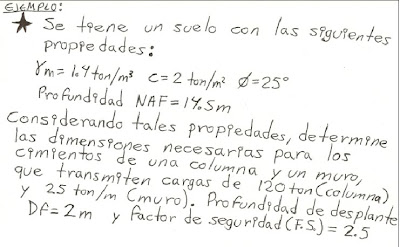 EJEMPLO:
★ Se tiene un suelo con las siguientes
propiedades:
γm=1.4 ton/m³ c=2 ton/m² Ø=25°
Profundidad NAF=14.5m
Considerando tales propiedades, determine
las dimensiones necesarias para los
cimientos de una columna y un muro,
que transmiten cargas de 120 ton (columna)
y 25 ton/m (muro). Profundidad de desplante
Df=2m y factor de seguridad (F.S.) = 2.5